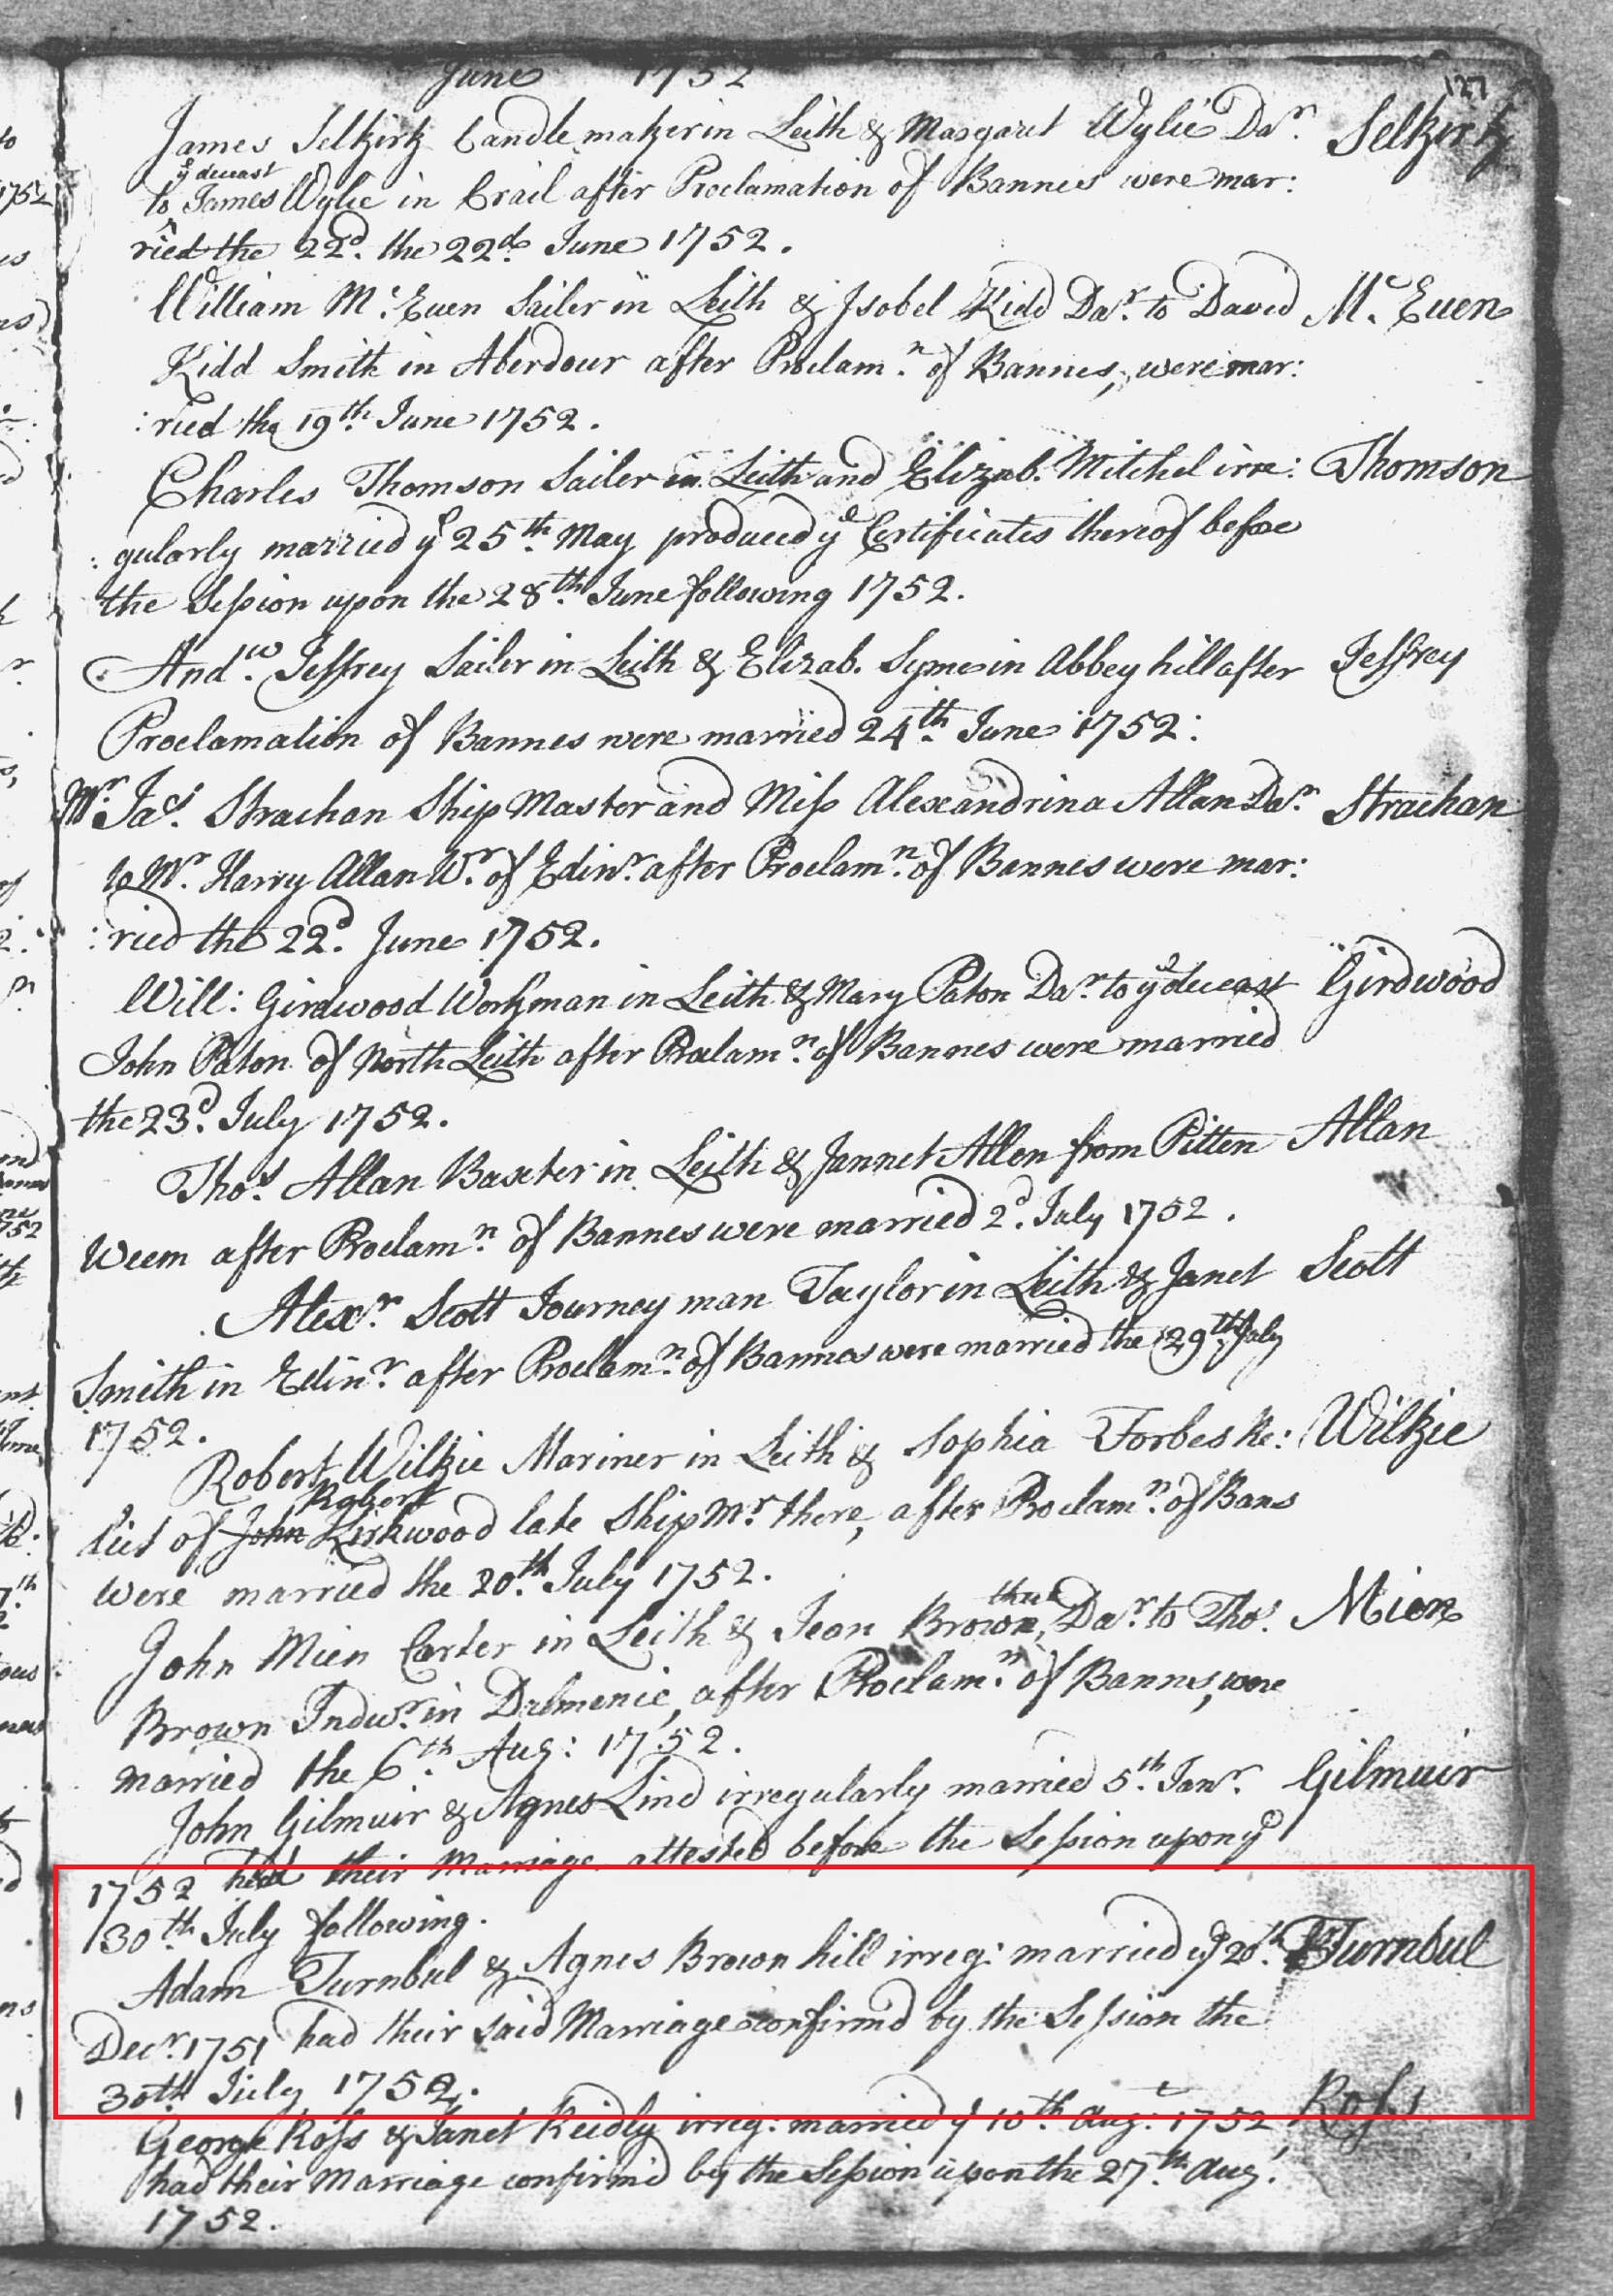 June 1752
127
James Selkirk Candle maker in Leith & Margaret Wylie Dar. Selkirk
ye deceast
to James Wylie in Crail after Proclamation of Bannes were mar:
ried the 22d. the 22d. June 1752.
William Mc.Euen Sailer in Leith & Isobel Kidd Dar. to David Mc. Euen
Kidd Smith in Aberdour after Proclamn. of Bannes, were mar:
:ried the 19th. June 1752.
Charles Thomson Sailer in Leith and Elizab. Mitchel irre: Thomson
:gularly married ye 25th. May produced ye Certificates thereof before
the Session upon the 28th. June following 1752.
Andw. Jeffrey Sailer in Leith & Elizab. Syme in Abbey hill after Jeffrey
Proclamation of Bannes were married 24th. June 1752:
Mr. Jas. Strachan Ship Master and Miss Alexandrina Allan Dar. Strachan
to Mr. Harry Allan Wr. of Edinr. after Proclamn. of Bannes were mar:
:ried the 22d. June 1752.
Will: Girdwood Workman in Leith & Mary Paton Dar. to ye deceast Girdwood
John Paton of North Leith after Proclamn. of Bannes were married
the 23d. July 1752.
Thos. Allan Baxter in Leith & Jannet Allen from Pitten Allan
Weem after Proclamn. of Bannes were married 2d. July 1752.
Alexr. Scott Journey man Taylor in Leith & Janet Scott
Smith in Edinr. after Proclamn. of Bannes were married the 29th. July
1752.
Robert Wilkie Mariner in Leith & Sophia Forbes Re: Wilkie
Robert
lict of John Kirkwood late Ship Mr. there, after Proclamn. of Bans
were married the 20th. July 1752.
John Mien Carter in Leith & Jean Brown, there Dar. to Thos. Mien
Brown Indwr. in Dalmenie, after Proclamn. of Bannes, were
married the 6th. Aug: 1752.
John Gilmuir & Agnes Lind irregularly married 5th. Janr. Gilmuir
1752 had their Marriage attested before the Session upon ye
30th. July following.
Adam Turnbul & Agnes Brown hill irreg: married ye 20th. Turnbul
Decr. 1751 had their said Marriage confirmd by the Session the
30th July 1752.
George Ross & Janet Reidly irreg: married ye 10th. Aug: 1752 Ross
had their Marriage confirmd by the Session upon the 27th. Aug:
1752.